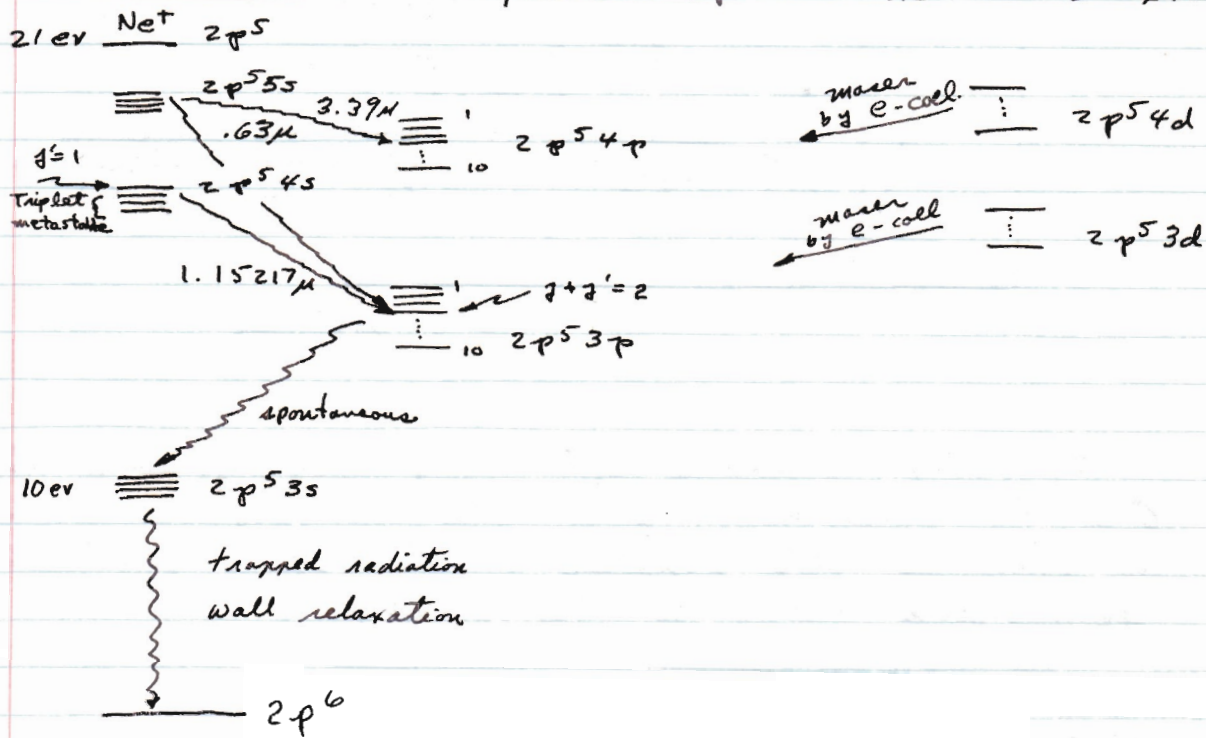 21 ev Ne⁺ 2p⁵
2p⁵5s
3.39μ
.63μ
1
2p⁵4p
10
maser
by e-coll.
2p⁵4d
j'=1
Triplet {
metastable
2p⁵4s
maser
by e-coll
2p⁵3d
1.15217μ
1
j+j'=2
10 2p⁵3p
spontaneous
10 ev 2p⁵3s
trapped radiation
wall relaxation
2p⁶